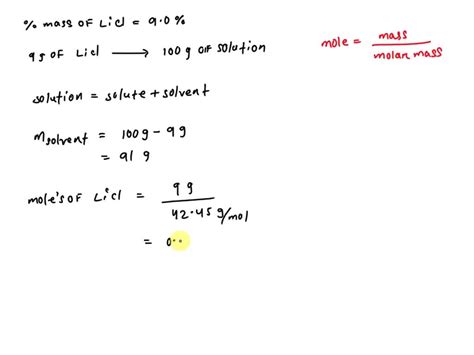 % mass of LiCl = 9.0 %
9g of LiCl → 100 g of solution
mole = mass / molar mass
solution = solute + solvent
msolvent = 100g - 9g
= 91 g
mole's of LiCl = 9 g / 42.45 g/mol
= 0..